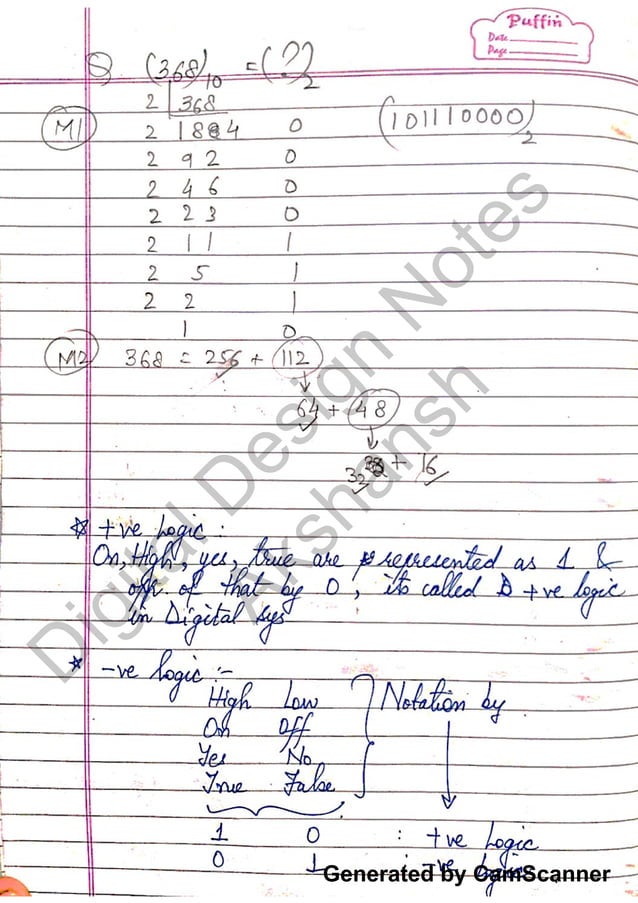 Puffin
Date
Page
Q) (368)10 = (?)2
2 368
M1 2 184 0 (101110000)2
2 92 0
2 46 0
2 23 0
2 11 1
2 5 1
2 2 1
1 0
M2 368 = 256 + 112
64 + 48
32 + 16
+ve Logic :
On, High, yes, true are represented as 1 &
opp. of that by 0, its called +ve logic
in Digital sys
-ve logic :-
High Low Notation by
On Off
Yes No
True False
1 0 : +ve Logic
0 1 : -ve Logic
Digital Design Notes
Akshansh
Generated by CamScanner